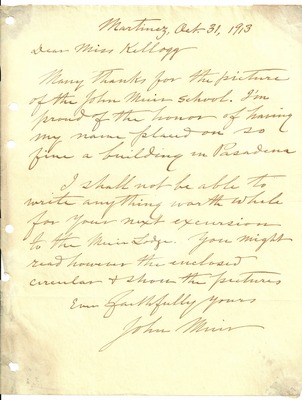 Martinez, Oct 31, 1913
Dear Miss Kellogg
Many thanks for the picture
of the John Muir School. I'm
proud of the honor of having
my name placed on so
fine a building in Pasadena
I shall not be able to
write anything worth while
for your next excursion
to the Muir Lodge. You might
read however the enclosed
circular & show the pictures
Ever faithfully yours
John Muir